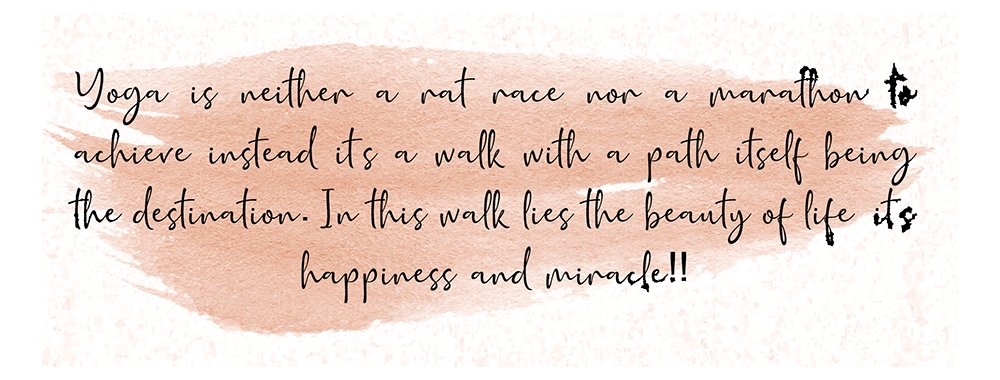 Yoga is neither a rat race nor a marathon to
achieve instead it's a walk with a path itself being
the destination. In this walk lies the beauty of life it's
happiness and miracle!!